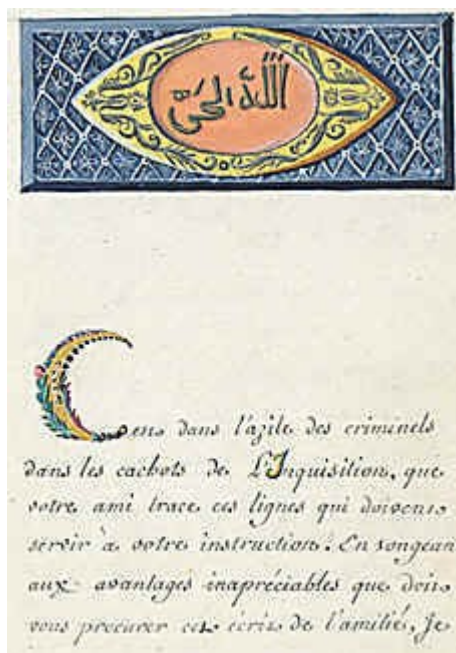 اللّه الحى
C'est dans l'azile des criminels
dans les cachots de L'Inquisition, que
votre ami trace ces lignes qui doivent
servir à votre instruction. En songean
aux avantages inapréciables que doit
vous procurer cet écrit de l'amitié, je